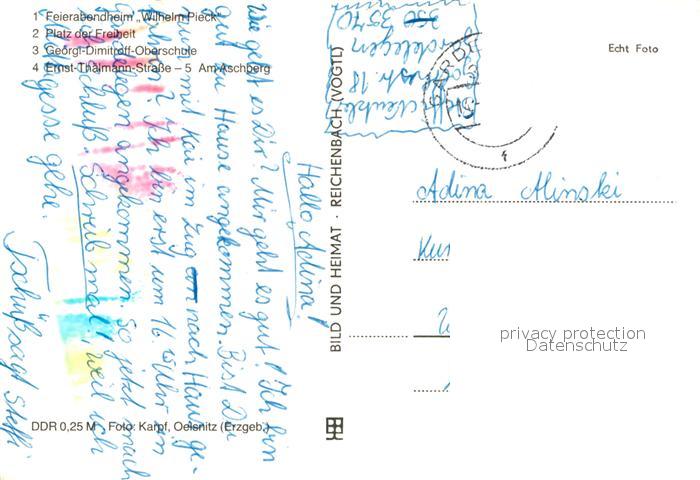 1 Feierabendheim „Wilhelm Pieck"
2 Platz der Freiheit
3 Georgi-Dimitroff-Oberschule
4 Ernst-Thälmann-Straße – 5 Am Aschberg
Hallo Adina!
Wie geht es Dir? Mir geht es gut! Ich bin
gut zu Hause angekommen. Bist Du
nun mit Kai im Zug nach Hause ge-
? Ich bin erst um 16. Uhr in
Gardelegen angekommen. So jetzt mach
ich Schluß. Schreib mal! weil ich
gehe.
Tschüß sagt Steffi
DDR 0,25 M Foto: Karpf, Oelsnitz (Erzgeb.)
BILD UND HEIMAT · REICHENBACH (VOGTL)
Steffi
18
Gardelegen
3570
Echt Foto
Adina Alinski
privacy protection
Datenschutz